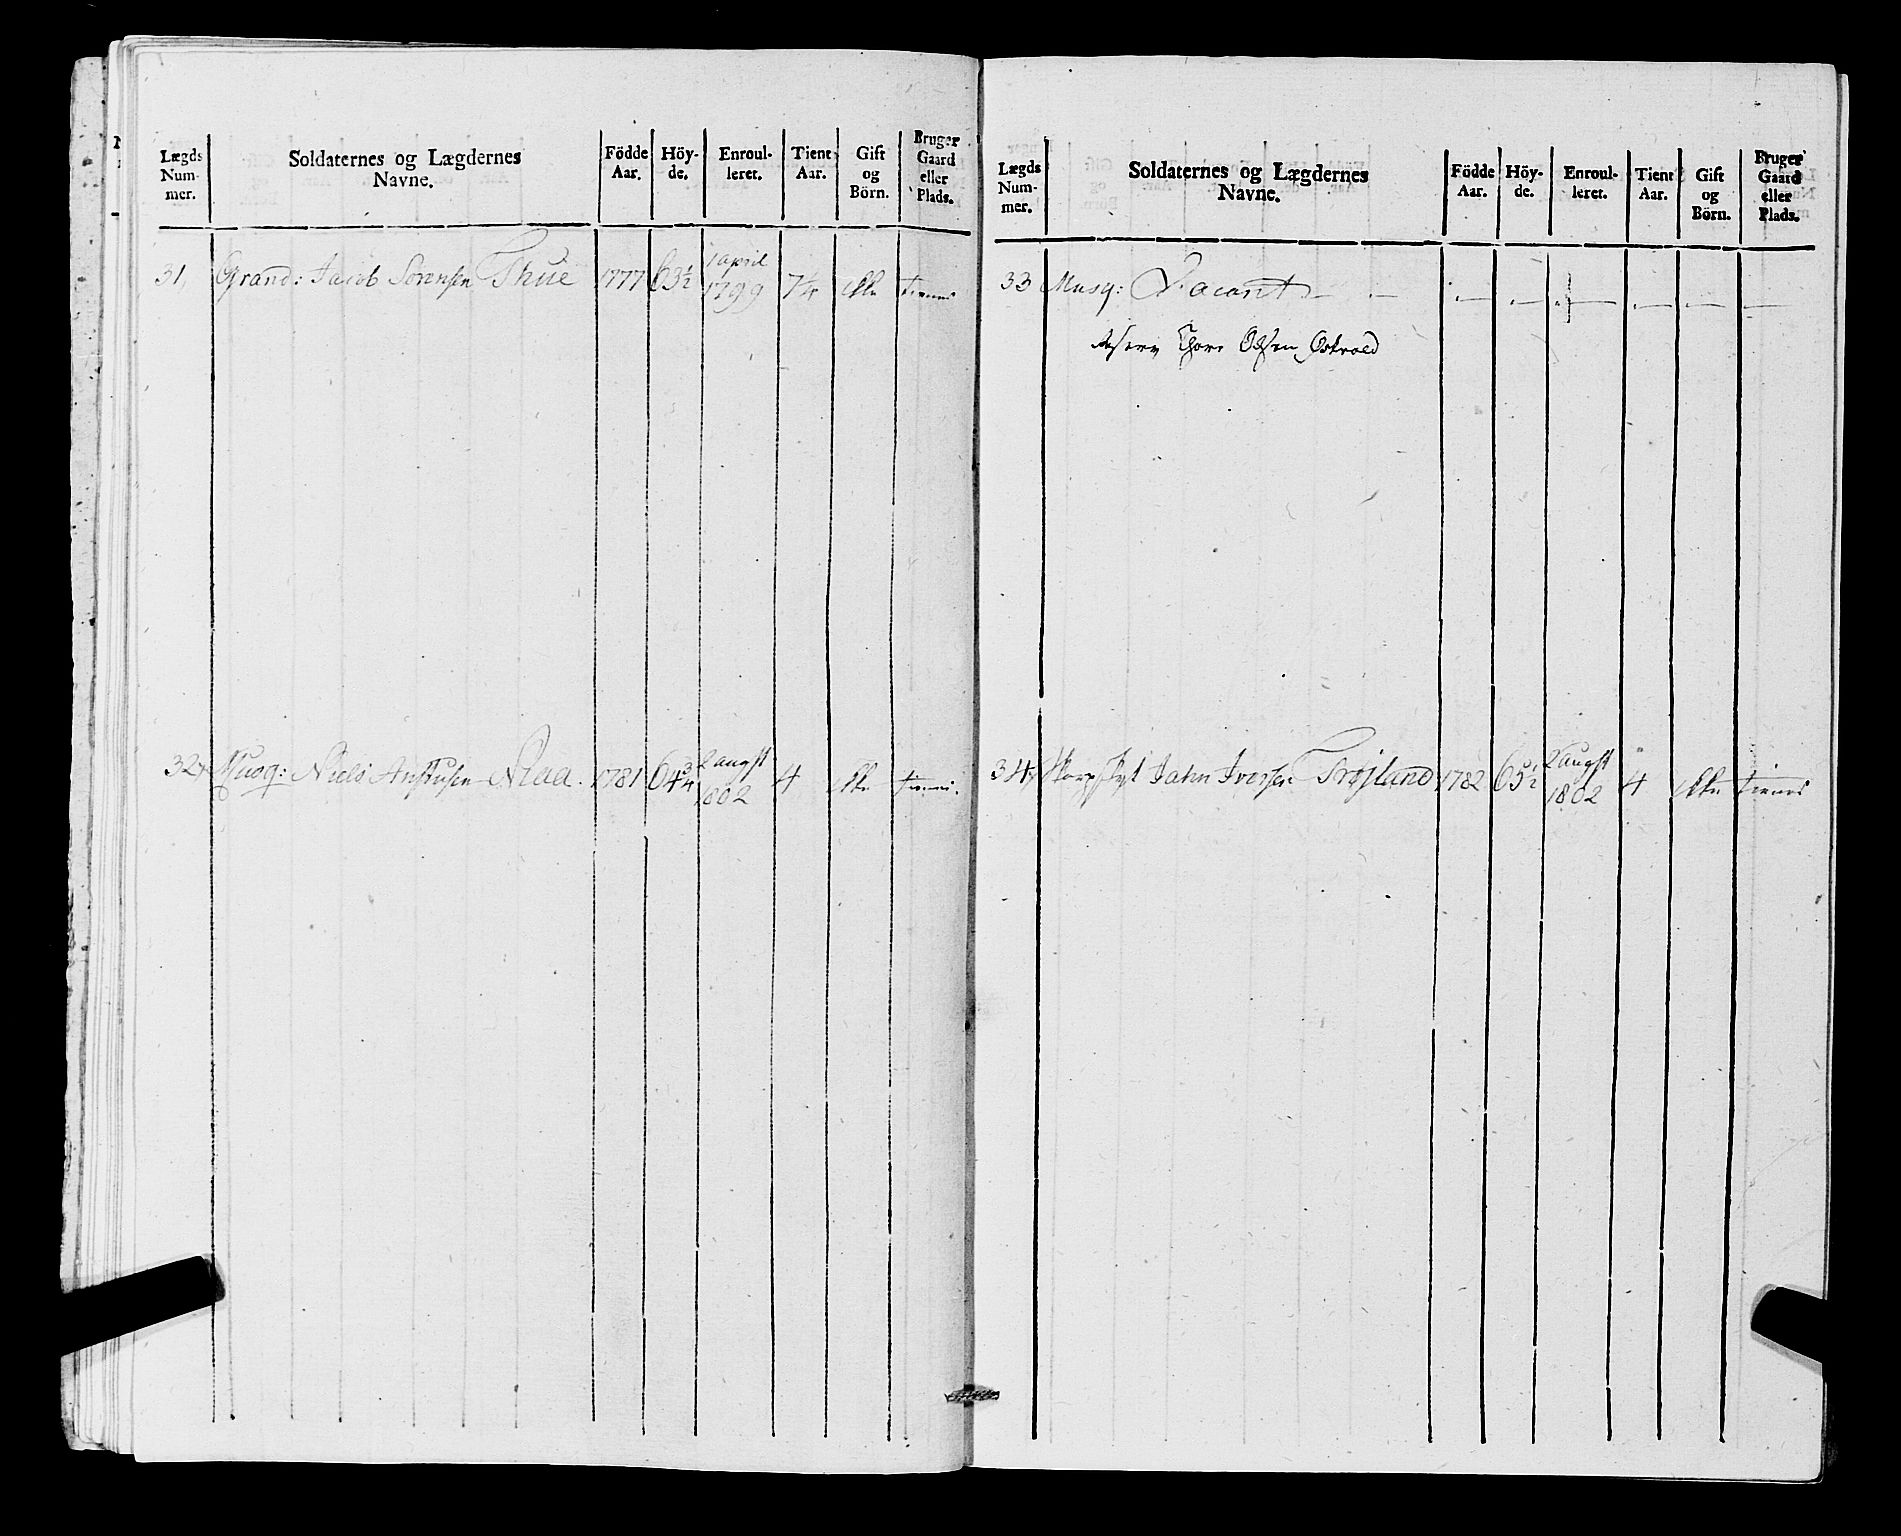 Lægds Num- mer. Soldaternes og Lægdernes Navne. Födde Aar. Höy- de. Enroul- leret. Tient Aar. Gift og Börn. Bruger Gaard eller Plads.
31, Grand: Jacob Sörensen Thue 1777 63½ 1 april 1799 7¼ ikke tienes
32, Musq: Niels Aaa. 1781 64¾ 2 augst 1802 4 ikke tienes.
Lægds Num- mer. Soldaternes og Lægdernes Navne. Födde Aar. Höy- de. Enroul- leret. Tient Aar. Gift og Börn. Bruger Gaard eller Plads.
33 Musq: Vacant — — — — — — — —
Reserv Thore Olsen
34, Jahn Iversen Tröjland 1782 65½ 2 augst 1802 4 ikke tienes